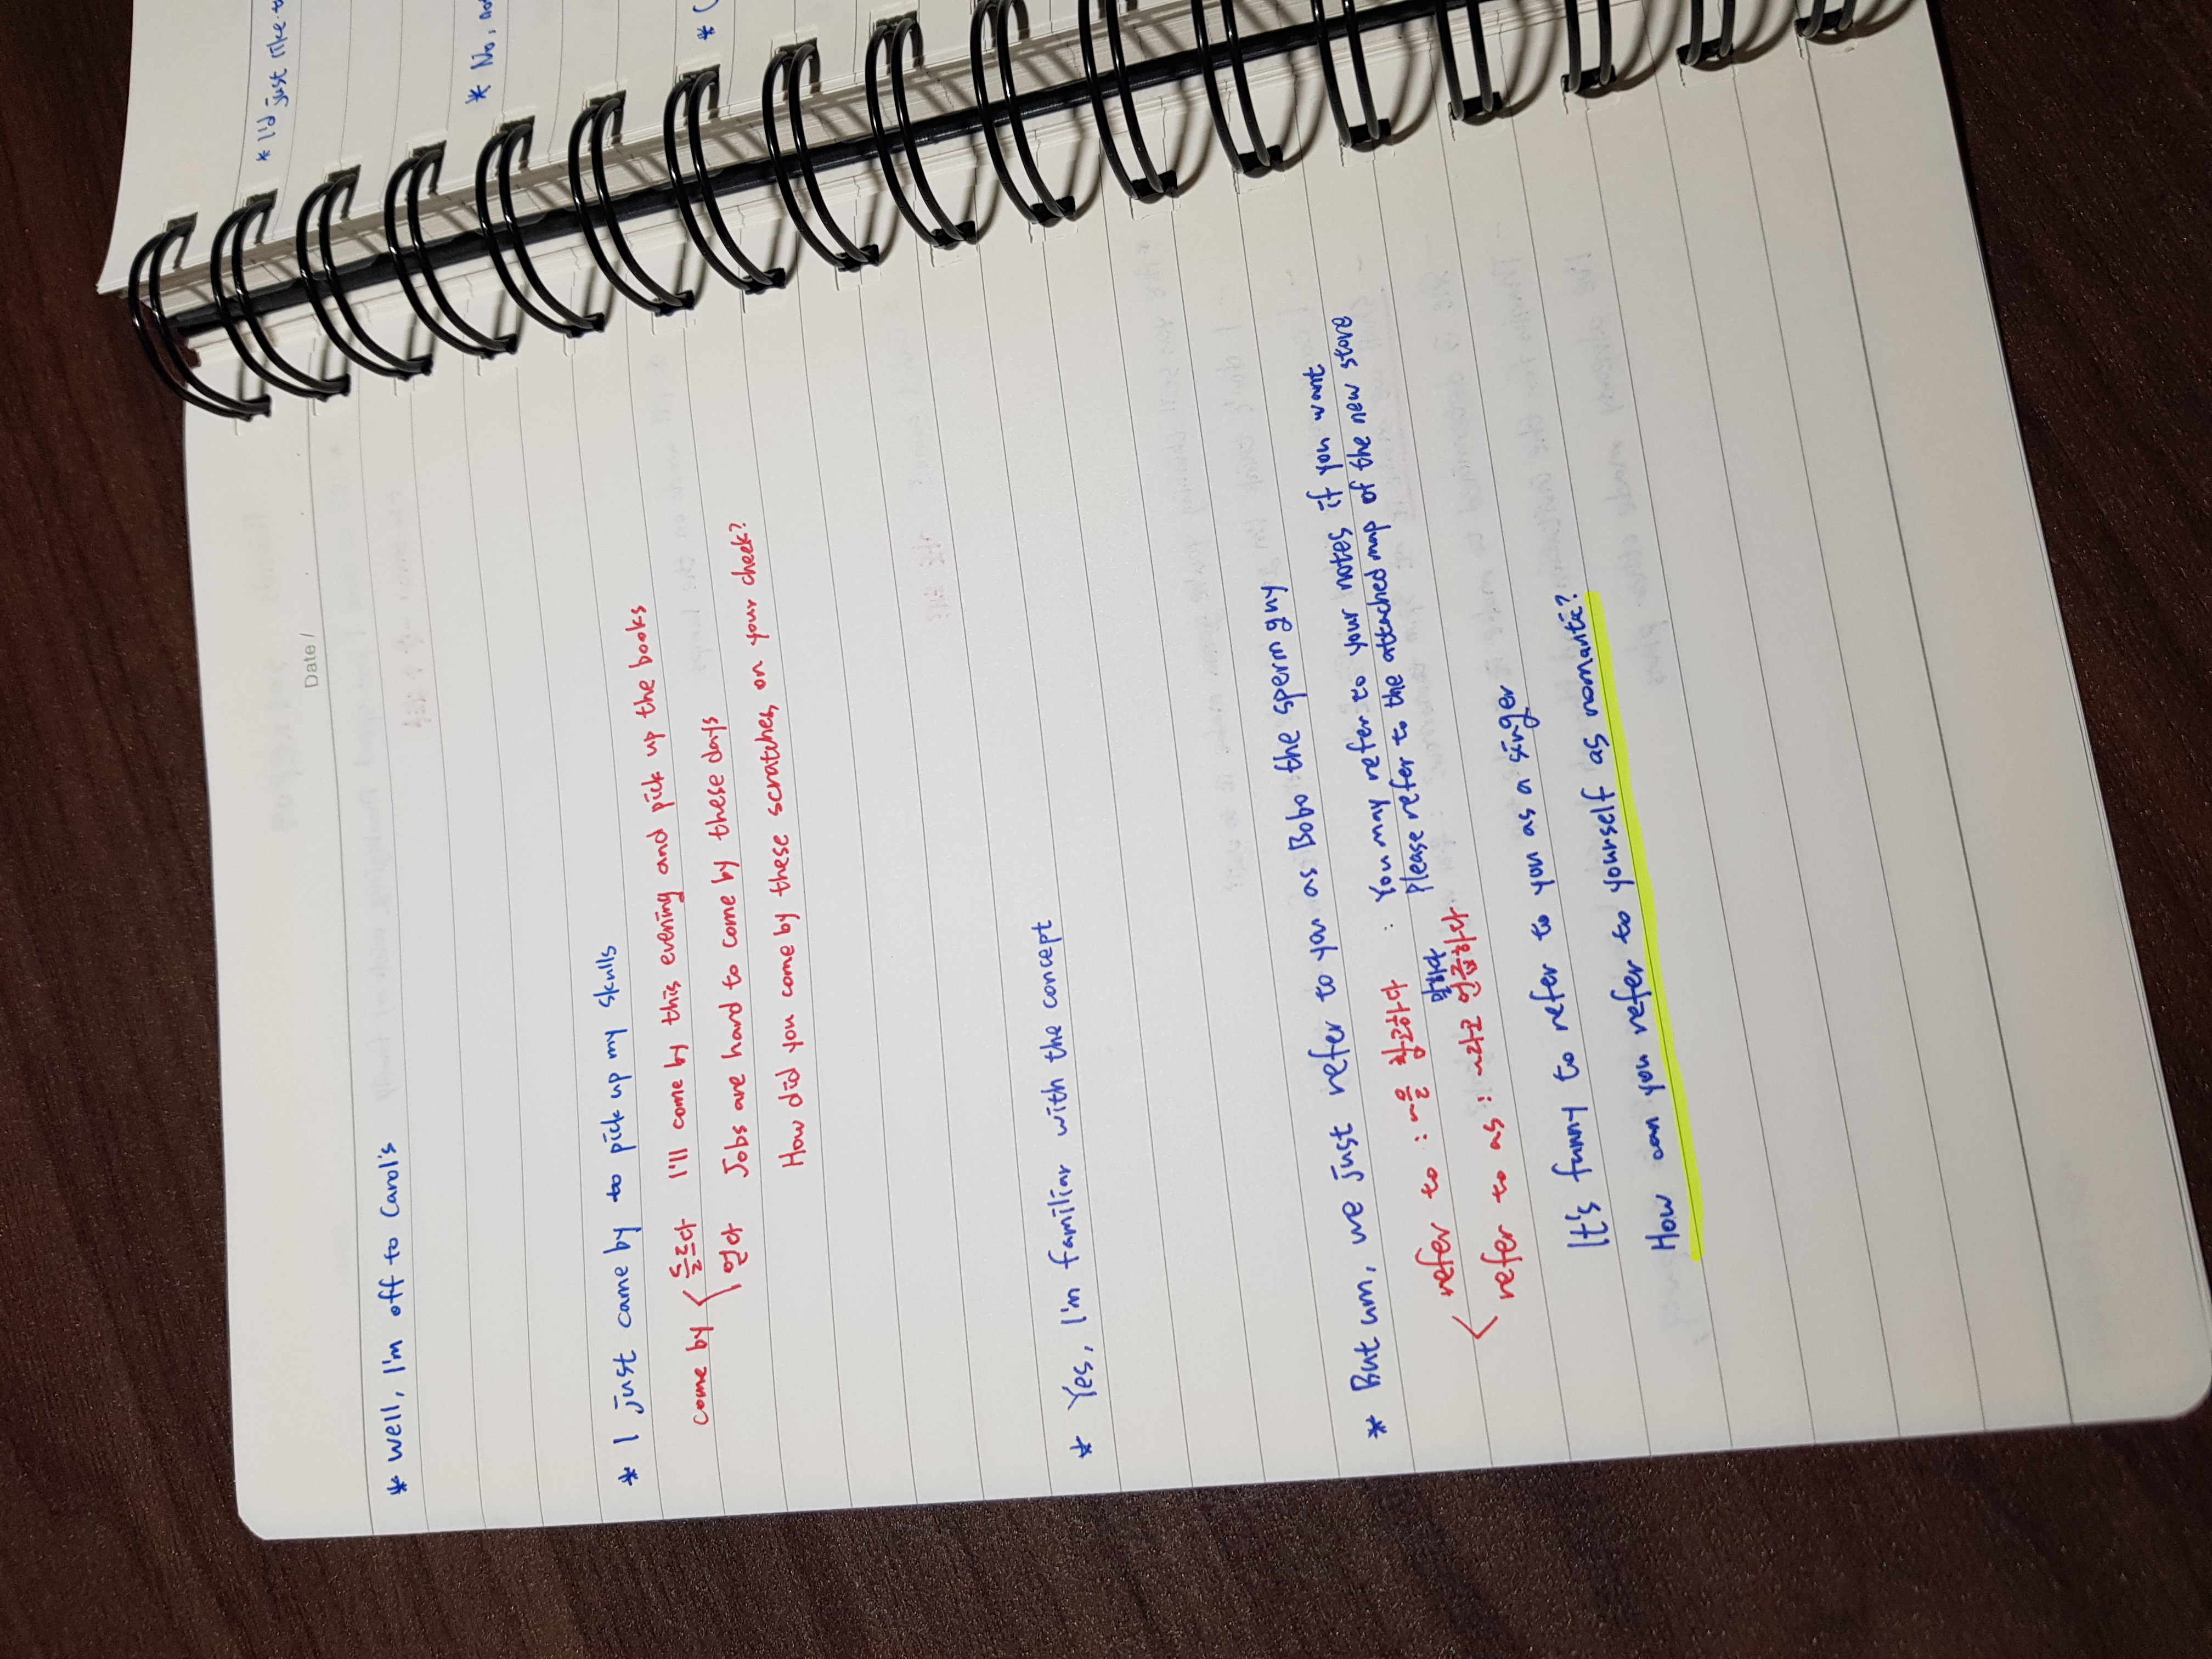 * I'd just like to
* No, not
* (
Date /
* Well, I'm off to Carol's
* I just came by to pick up my skulls
come by < 들르다 I'll come by this evening and pick up the books
얻다 Jobs are hard to come by these days
How did you come by these scratches, on your cheek?
* Yes, I'm familiar with the concept
* But um, we just refer to you as Bobo the sperm guy
< refer to : ~을 참고하다 : You may refer to your notes if you want
Please refer to the attached map of the new store
말하다
refer to as : ~라고 언급하다
It's funny to refer to you as a singer
How can you refer to yourself as romantic?